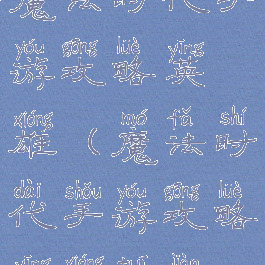 魔法时代手
yóu gōng luè yīng
游攻略英
xióng mó fǎ shí
雄（魔法时
dài shǒu yóu gōng luè
代手游攻略
yīng xióng tuī jiàn